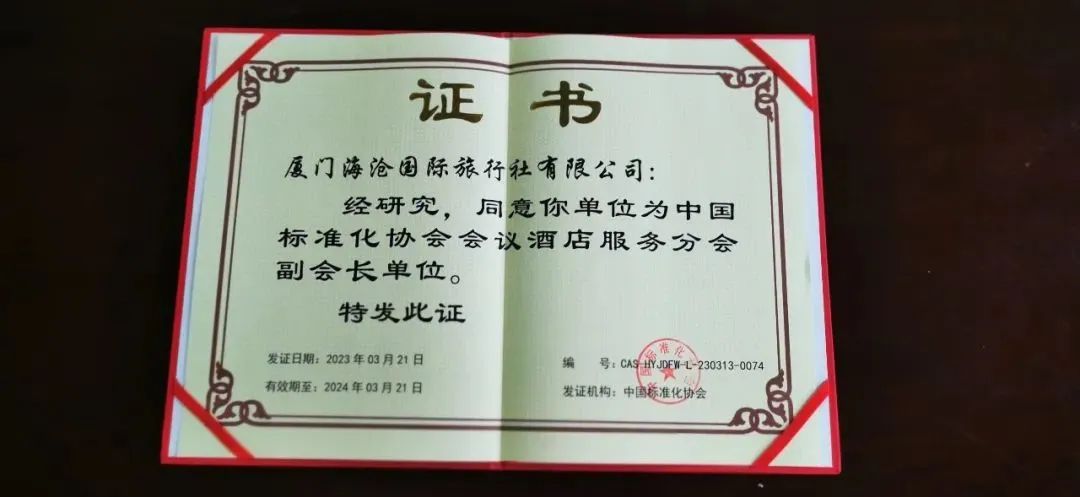 证书
厦门海沧国际旅行社有限公司：
经研究，同意你单位为中国
标准化协会会议酒店服务分会
副会长单位。
特发此证
发证日期：2023 年 03 月 21 日
有效期至：2024 年 03 月 21 日
编 号：CAS-HYJDFW-L-230313-0074
发证机构：中国标准化协会